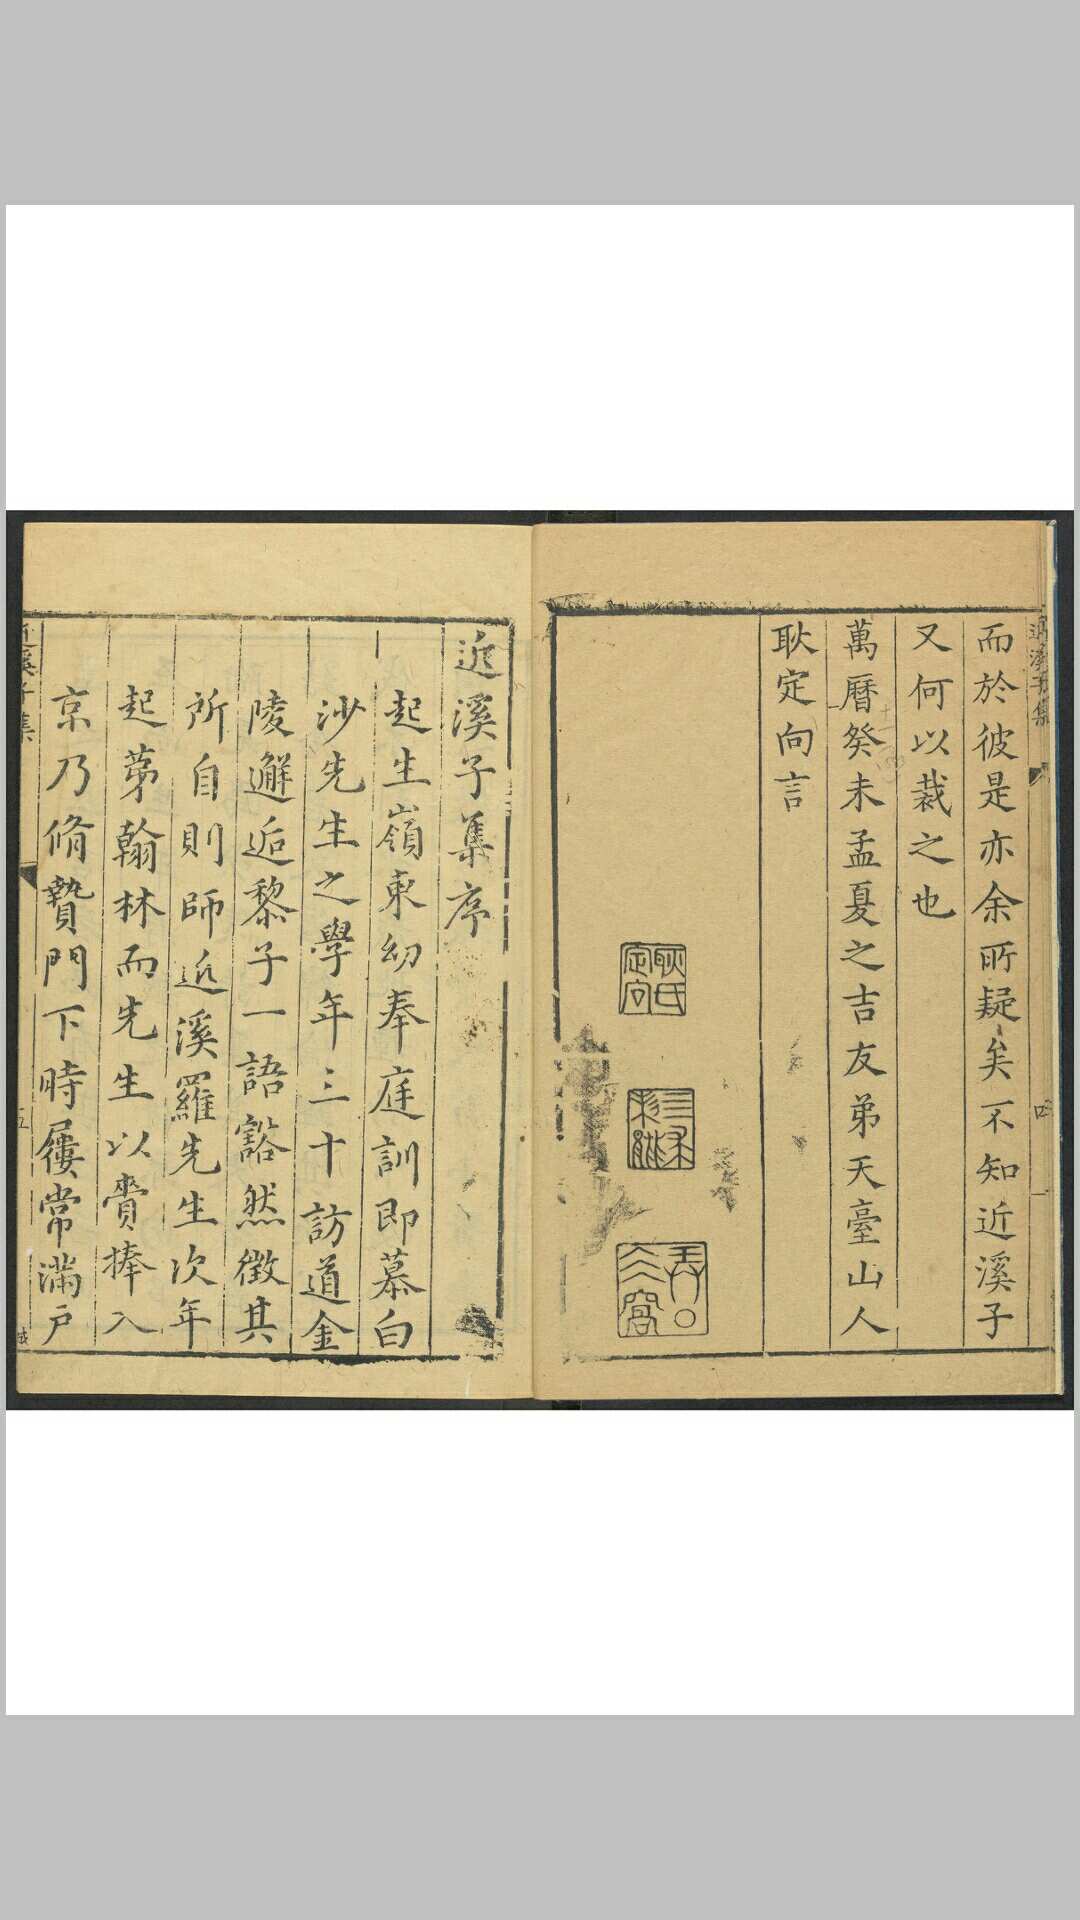 近溪子集
而於彼是亦余所疑矣不知近溪子
又何以裁之也
萬曆癸未孟夏之吉友弟天臺山人
耿定向言
四
耿氏定向
近溪子集序
起生嶺東幼奉庭訓即慕白
沙先生之學年三十訪道金
陵邂逅黎子一語豁然徵其
所自則師近溪羅先生次年
起苐翰林而先生以賫捧入
京乃脩贄門下時屨常滿戶
近溪子集
五